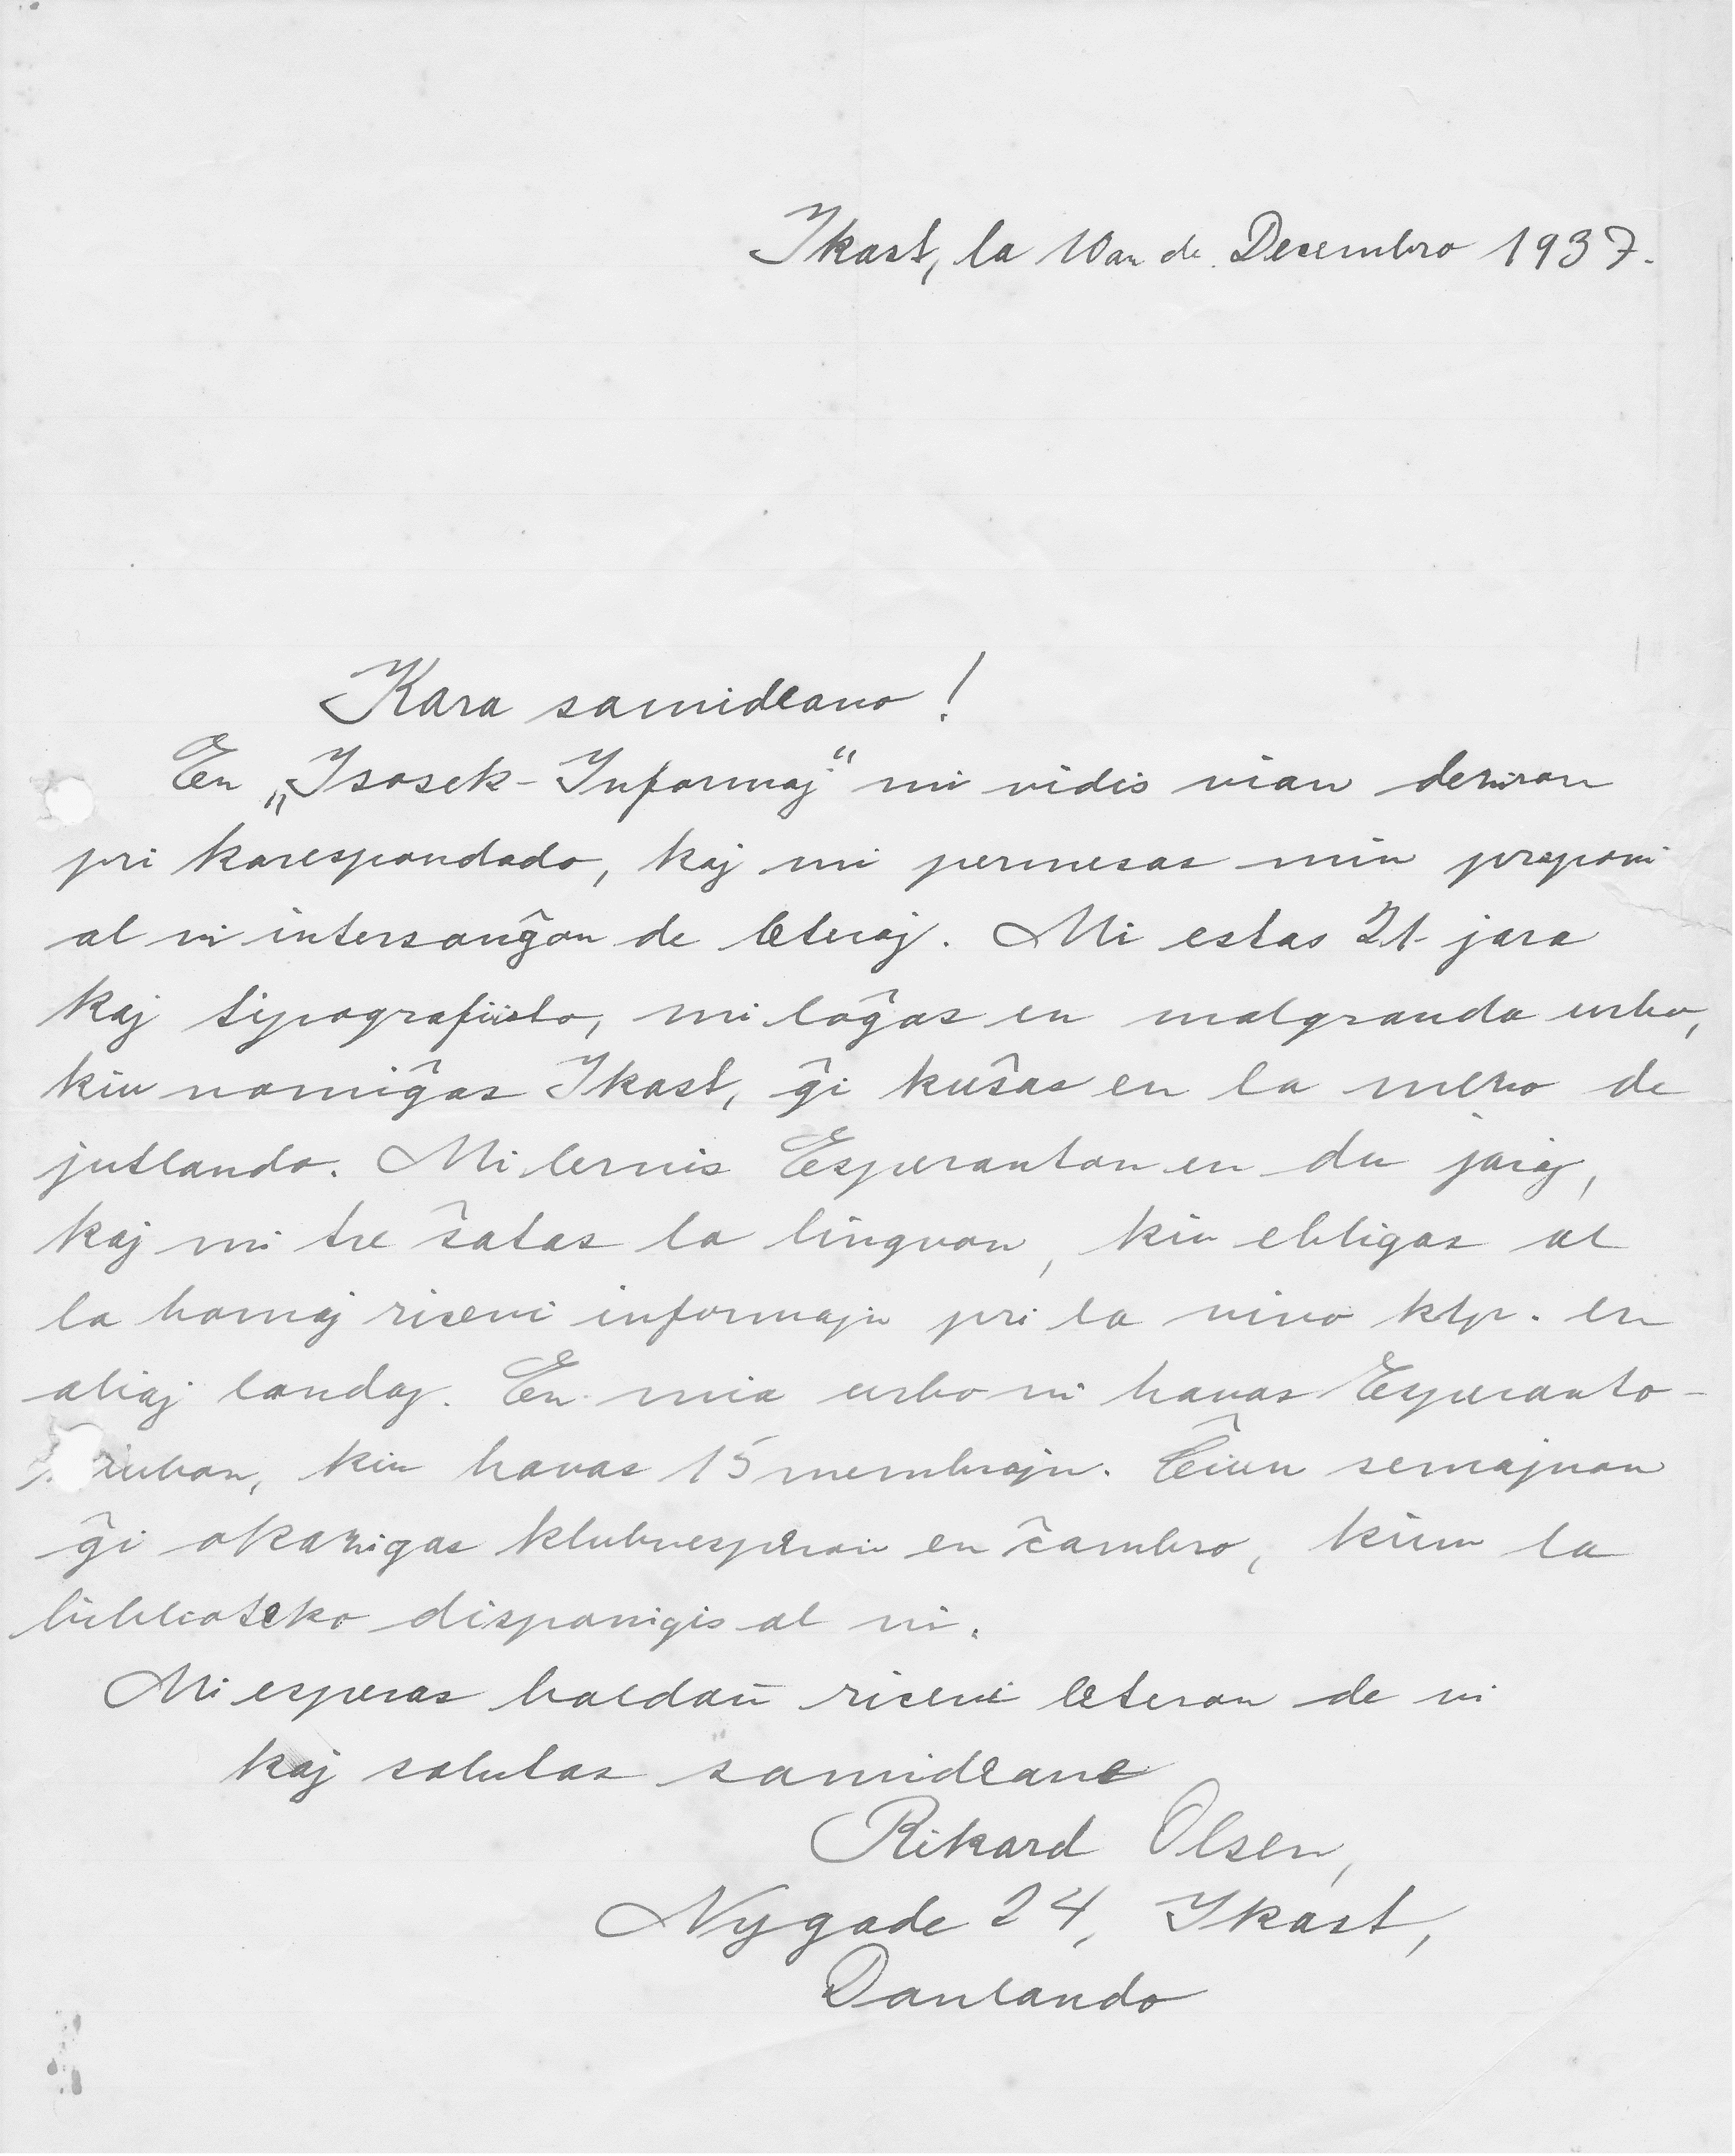 Ikast, la 10an de Decembro 1937.
Kara samideano!
En „Isosek-Informoj“ mi vidis vian deziron
pri korespondado, kaj mi permesas min proponi
al vi interŝanĝon de leteroj. Mi estas 21-jara
kaj tipografiisto, mi loĝas en malgranda urbo,
kiu nomiĝas Ikast, ĝi kuŝas en la mezo de
jutlando. Mi lernis Esperanton en du jaroj,
kaj mi tre ŝatas la lingvon, kiu ebligas al
la homoj ricevi informojn pri la vivo ktp. en
aliaj landoj. En mia urbo ni havas Esperanto-
kiu havas 15 membrojn. Ĉiun semajnon
ĝi okazigas klubvesperon en ĉambro, kiun la
biblioteko disponigis al ni.
Mi esperas baldaŭ ricevi leteron de vi
kaj salutas samideane
Rikard Olsen,
Nygade 24, Ikast,
Danlando